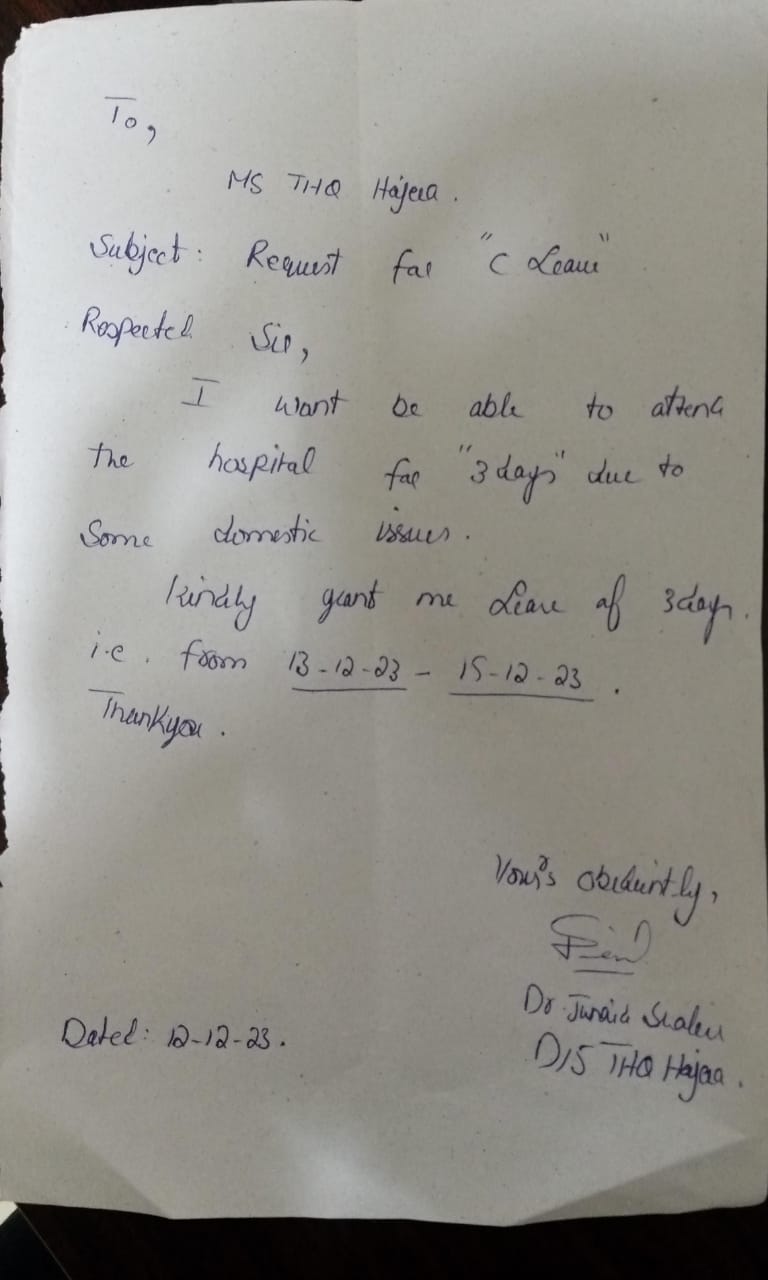 To,
MS THQ Hajeera.
Subject: Request for "C Leave"
Respected Sir,
I want be able to attend
the hospital for "3 days" due to
Some domestic issues.
Kindly grant me Leave of 3 days.
i.e. from 13-12-23 - 15-12-23.
Thankyou.
Your's obediently,
Dr. Junaid
D/S THQ Hajeera.
Dated: 12-12-23.